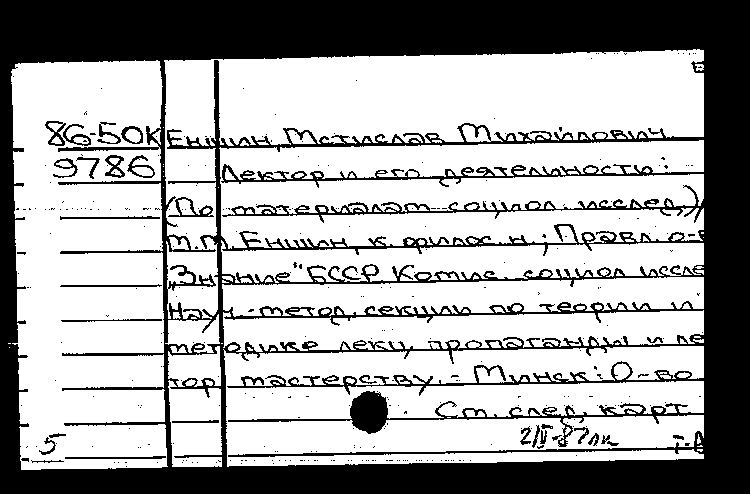 86-50К Еншин, Мстислав Михайлович.
9786 Лектор и его деятельность:
(По материалам социол. исслед.)/
М.М. Еншин, к. филос. н.; Правл. о-в
„Знание" БССР Комис. социол иссле
Науч.-метод. секции по теории и
методике лекц. пропаганды и ле
тор мастерству. - Минск: О-во
См. след. карт
5 2/IV-87
т-А